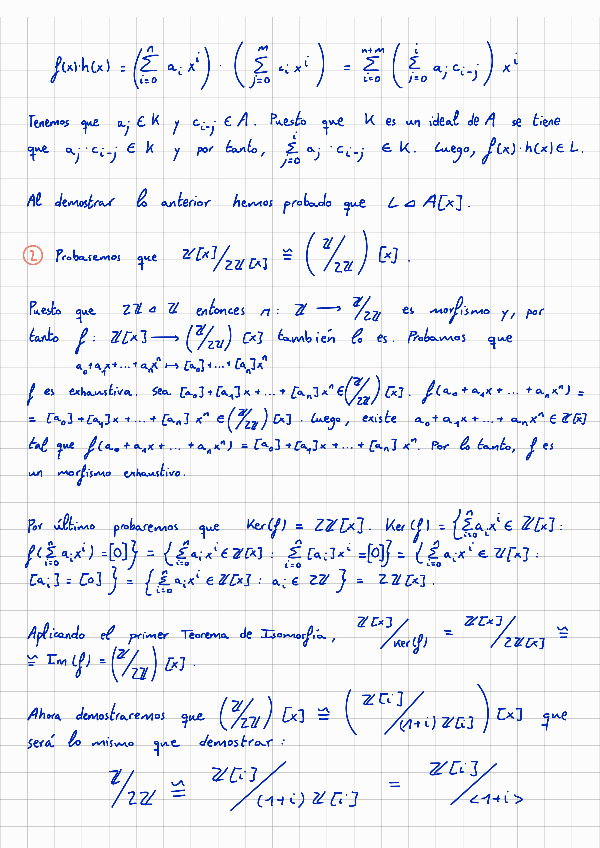 f(x)·h(x) = (∑_{i=0}^{n} a_i x^i) · (∑_{j=0}^{m} c_i x^i) = ∑_{i=0}^{n+m} (∑_{j=0}^{i} a_j c_{i-j}) x^i
Tenemos que a_j ∈ K y c_{i-j} ∈ A. Puesto que K es un ideal de A se tiene
que a_j · c_{i-j} ∈ K y por tanto, ∑_{j=0}^{i} a_j · c_{i-j} ∈ K. Luego, f(x)·h(x) ∈ L.
Al demostrar lo anterior hemos probado que L ⊲ A[x].
② Probaremos que ℤ[x]/2ℤ[x] ≅ (ℤ/2ℤ) [x].
Puesto que 2ℤ ⊲ ℤ entonces π: ℤ ⟶ ℤ/2ℤ es morfismo y, por
tanto f: ℤ[x] ⟶ (ℤ/2ℤ) [x] también lo es. Probamos que
a_0+a_1x+...+a_nx^n ↦ [a_0]+...+[a_n]x^n
f es exhaustiva. Sea [a_0]+[a_1]x+...+[a_n]x^n ∈ (ℤ/2ℤ) [x]. f(a_0+a_1x+...+a_nx^n) =
= [a_0]+[a_1]x+...+[a_n] x^n ∈ (ℤ/2ℤ) [x]. Luego, existe a_0+a_1x+...+a_nx^n ∈ ℤ[x]
tal que f(a_0+a_1x+...+a_nx^n) = [a_0]+[a_1]x+...+[a_n] x^n. Por lo tanto, f es
un morfismo exhaustivo.
Por último probaremos que Ker(f) = 2ℤ[x]. Ker(f) = {∑_{i=0}^{n} a_i x^i ∈ ℤ[x] :
f(∑_{i=0}^{n} a_i x^i) = [0]} = {∑_{i=0}^{n} a_i x^i ∈ ℤ[x] : ∑_{i=0}^{n} [a_i] x^i = [0]} = {∑_{i=0}^{n} a_i x^i ∈ ℤ[x] :
[a_i] = [0]} = {∑_{i=0}^{n} a_i x^i ∈ ℤ[x] : a_i ∈ 2ℤ} = 2ℤ[x].
Aplicando el primer Teorema de Isomorfía, ℤ[x]/Ker(f) = ℤ[x]/2ℤ[x] ≅
≅ Im(f) = (ℤ/2ℤ) [x].
Ahora demostraremos que (ℤ/2ℤ) [x] ≅ (ℤ[i]/(1+i)ℤ[i]) [x] que
será lo mismo que demostrar:
ℤ/2ℤ ≅ ℤ[i]/(1+i)ℤ[i] = ℤ[i]/<1+i>